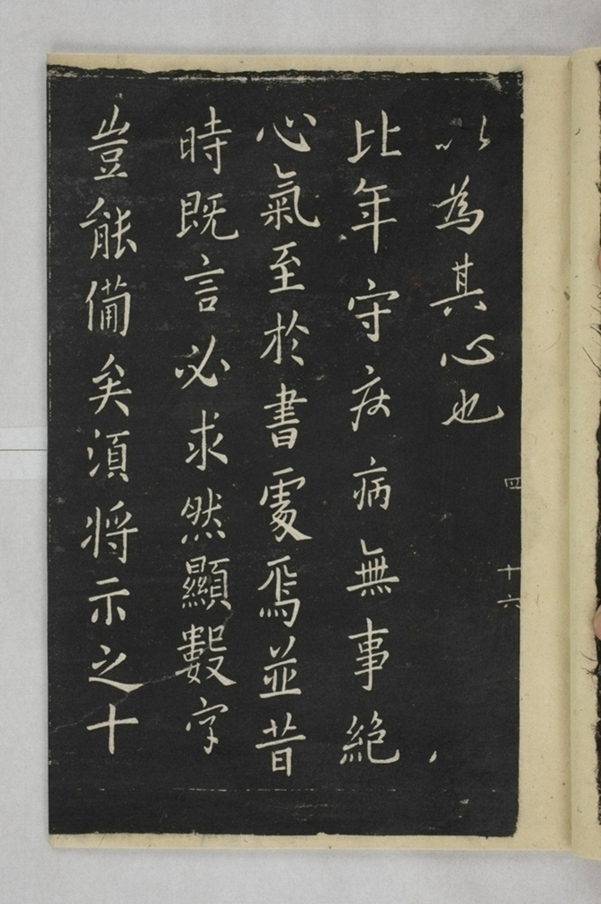 以為其心也
比年守疾病無事絶
心氣至於書處焉並昔
時既言必求然顯數字
豈能備矣須将示之十
四 十六